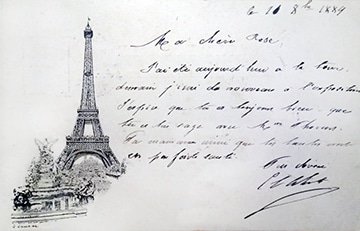 le 16 8bre 1889
Ma chère Rose,
J'ai été aujourd'hui à la tour,
demain j'irai de nouveau à l'exposition
J'espère que tu es toujours bien, que
tu es bien sage avec Mme
Ta maman ainsi que tes tantes sont
en parfaite santé.
Ton